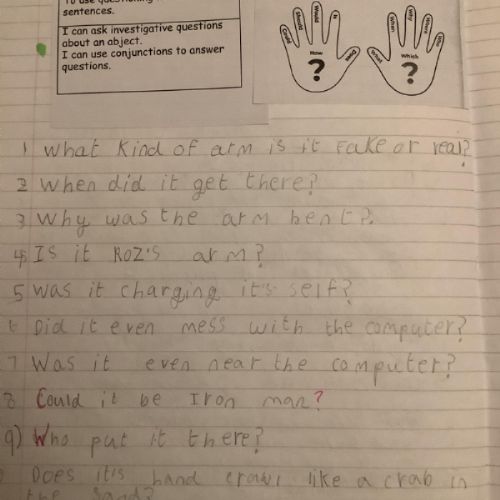 sentences.
I can ask investigative questions
about an abject.
I can use conjunctions to answer
questions.
Could Should Would Is
How
?
What When Why Where Who
Which
?
1 What kind of arm is it fake or real?
2 When did it get there?
3 Why was the arm bent?
4 Is it Roz's arm?
5 Was it charging it's self?
6 Did it even mess with the computer?
7 Was it even near the computer?
8 Could it be Iron man?
9) Who put it there?
Does it's hand crawl like a crab in
the sand?